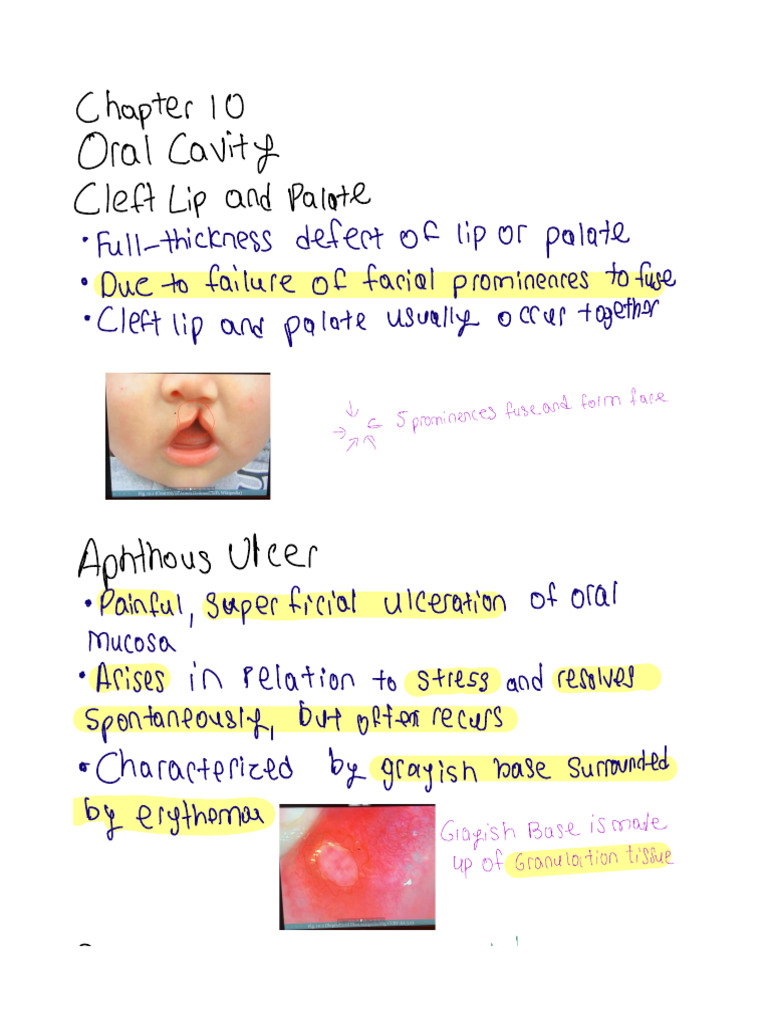 Chapter 10
Oral Cavity
Cleft Lip and Palate
• Full-thickness defect of lip or palate
• Due to failure of facial prominences to fuse
• Cleft lip and palate usually occur together
5 prominences fuse and form face
Aphthous Ulcer
• Painful, superficial ulceration of oral
mucosa
• Arises in relation to stress and resolves
spontaneously, but often recurs
• Characterized by grayish base surrounded
by erythema
Grayish Base is made
up of Granulation tissue